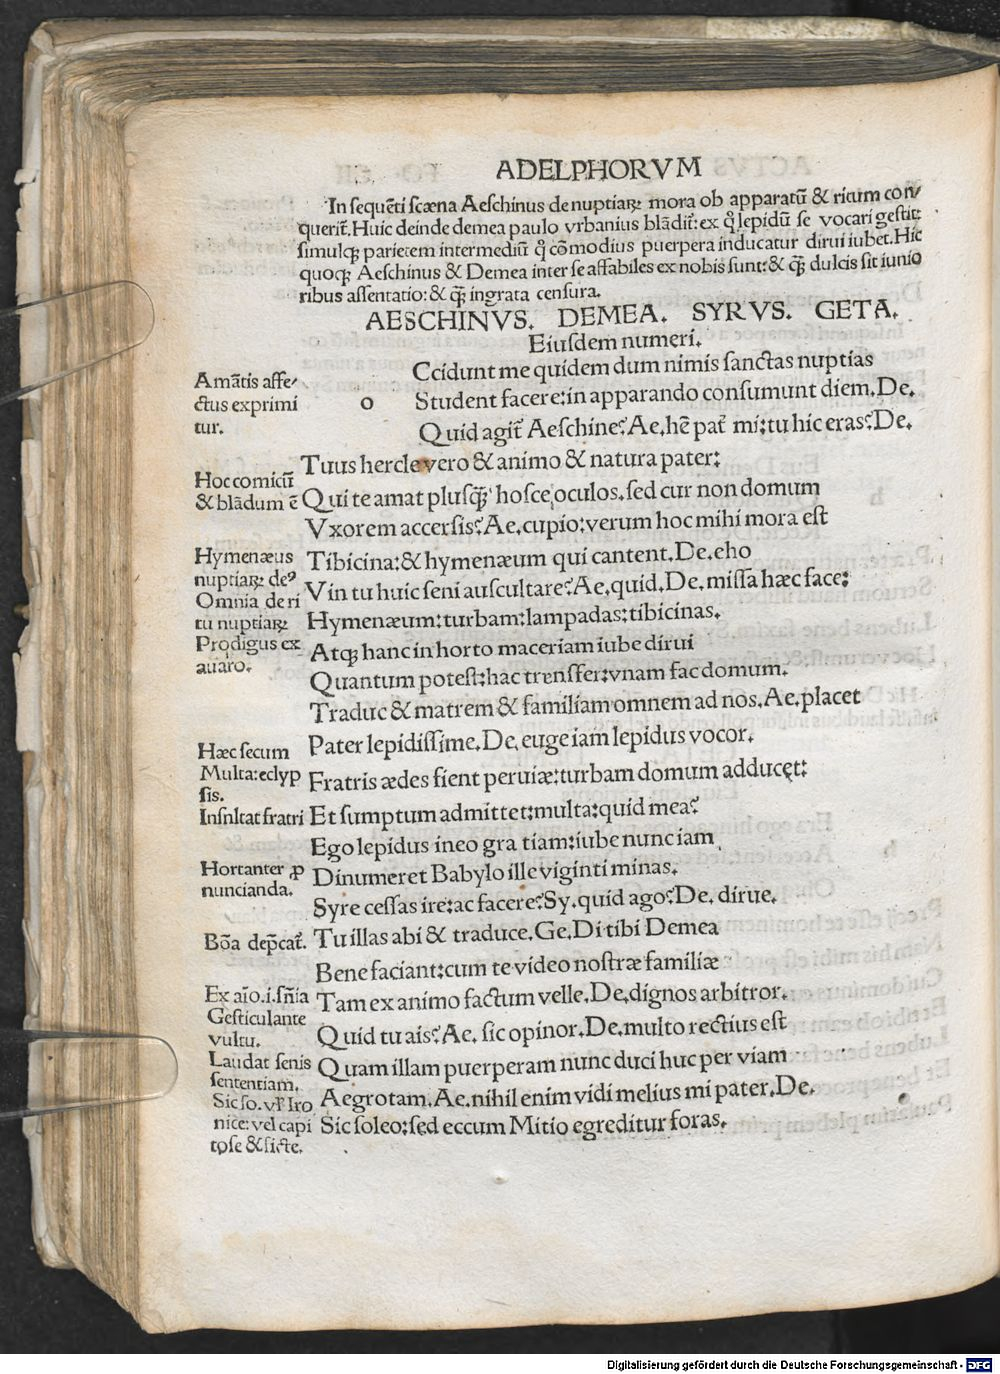 ADELPHORVM
In sequẽti scæna Aeschinus de nuptiaꝝ mora ob apparatũ & ritum con/
querit̃. Huic deinde demea paulo vrbanius blãdit̃: ex q̃ lepidũ se vocari gestit:
simulqꝫ parietem intermediũ q̃ cõmodius puerpera inducatur dirui iubet. Hic
quoqꝫ Aeschinus & Demea inter se affabiles ex nobis sunt: & q̃ꝫ dulcis sit iunio
ribus assentatio: & q̃ꝫ ingrata censura.
AESCHINVS. DEMEA. SYRVS. GETA.
Eiusdem numeri.
o
Ccidunt me quidem dum nimis sanctas nuptias
Student facere: in apparando consumunt diem. De.
Quid agit̃ Aeschine? Ae. hẽ pat̃ mi: tu hic eras? De.
Tuus hercle vero & animo & natura pater:
Qui te amat plusq̃ꝫ hosce oculos. sed cur non domum
Vxorem accersis? Ae. cupio: verum hoc mihi mora est
Tibicina: & hymenæum qui cantent. De. eho
Vin tu huic seni auscultare? Ae. quid. De. missa hæc face:
Hymenæum: turbam: lampadas: tibicinas.
Atqꝫ hanc in horto maceriam iube dirui
Quantum potest: hac trensfer: vnam fac domum.
Traduc & matrem & familiam omnem ad nos. Ae. placet
Pater lepidissime. De. euge iam lepidus vocor.
Fratris ædes fient peruiæ: turbam domum adducęt:
Et sumptum admittet: multa: quid mea?
Ego lepidus ineo gra tiam: iube nunc iam
Dinumeret Babylo ille viginti minas.
Syre cessas ire: ac facere? Sy. quid ago? De. dirue.
Tu illas abi & traduce. Ge. Di tibi Demea
Bene faciant: cum te video nostræ familiæ
Tam ex animo factum velle. De. dignos arbitror.
Quid tu ais? Ae. sic opinor. De. multo rectius est
Quam illam puerperam nunc duci huc per viam
Aegrotam. Ae. nihil enim vidi melius mi pater. De.
Sic soleo: sed eccum Mitio egreditur foras.
Amãtis affe/
ctus exprimi
tur.
Hoc comicũ
& blãdum ẽ
Hymenæus
nuptiaꝝ deꝰ
Omnia de ri
tu nuptiaꝝ
Prodigus ex
auaro.
Hæc secum
Multa: eclyp
sis.
Insnltat fratri
Hortanter ꝓ
nuncianda.
Bõa dep̃cat̃.
Ex aĩo. i. sñia
Gesticulante
vultu.
Laudat senis
sententiam.
Sic so. vl̃ Iro
nice: vel capi
tose & sicte.
Digitalisierung gefördert durch die Deutsche Forschungsgemeinschaft - DFG